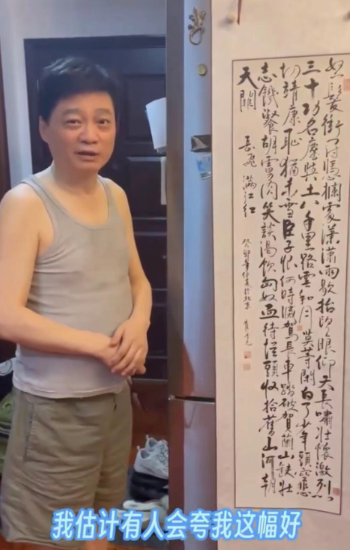 怒髮衝冠憑欄處瀟瀟雨歇抬望眼仰天長嘯壯懷激烈
三十功名塵與土八千里路雲和月莫等閑白了少年頭空悲
切靖康恥猶未雪臣子恨何時滅駕長車踏破賀蘭山缺壯
志飢餐胡虜肉笑談渴飲匈奴血待從頭收拾舊山河朝
天闕
岳飛 滿江紅
我估计有人会夸我这幅好